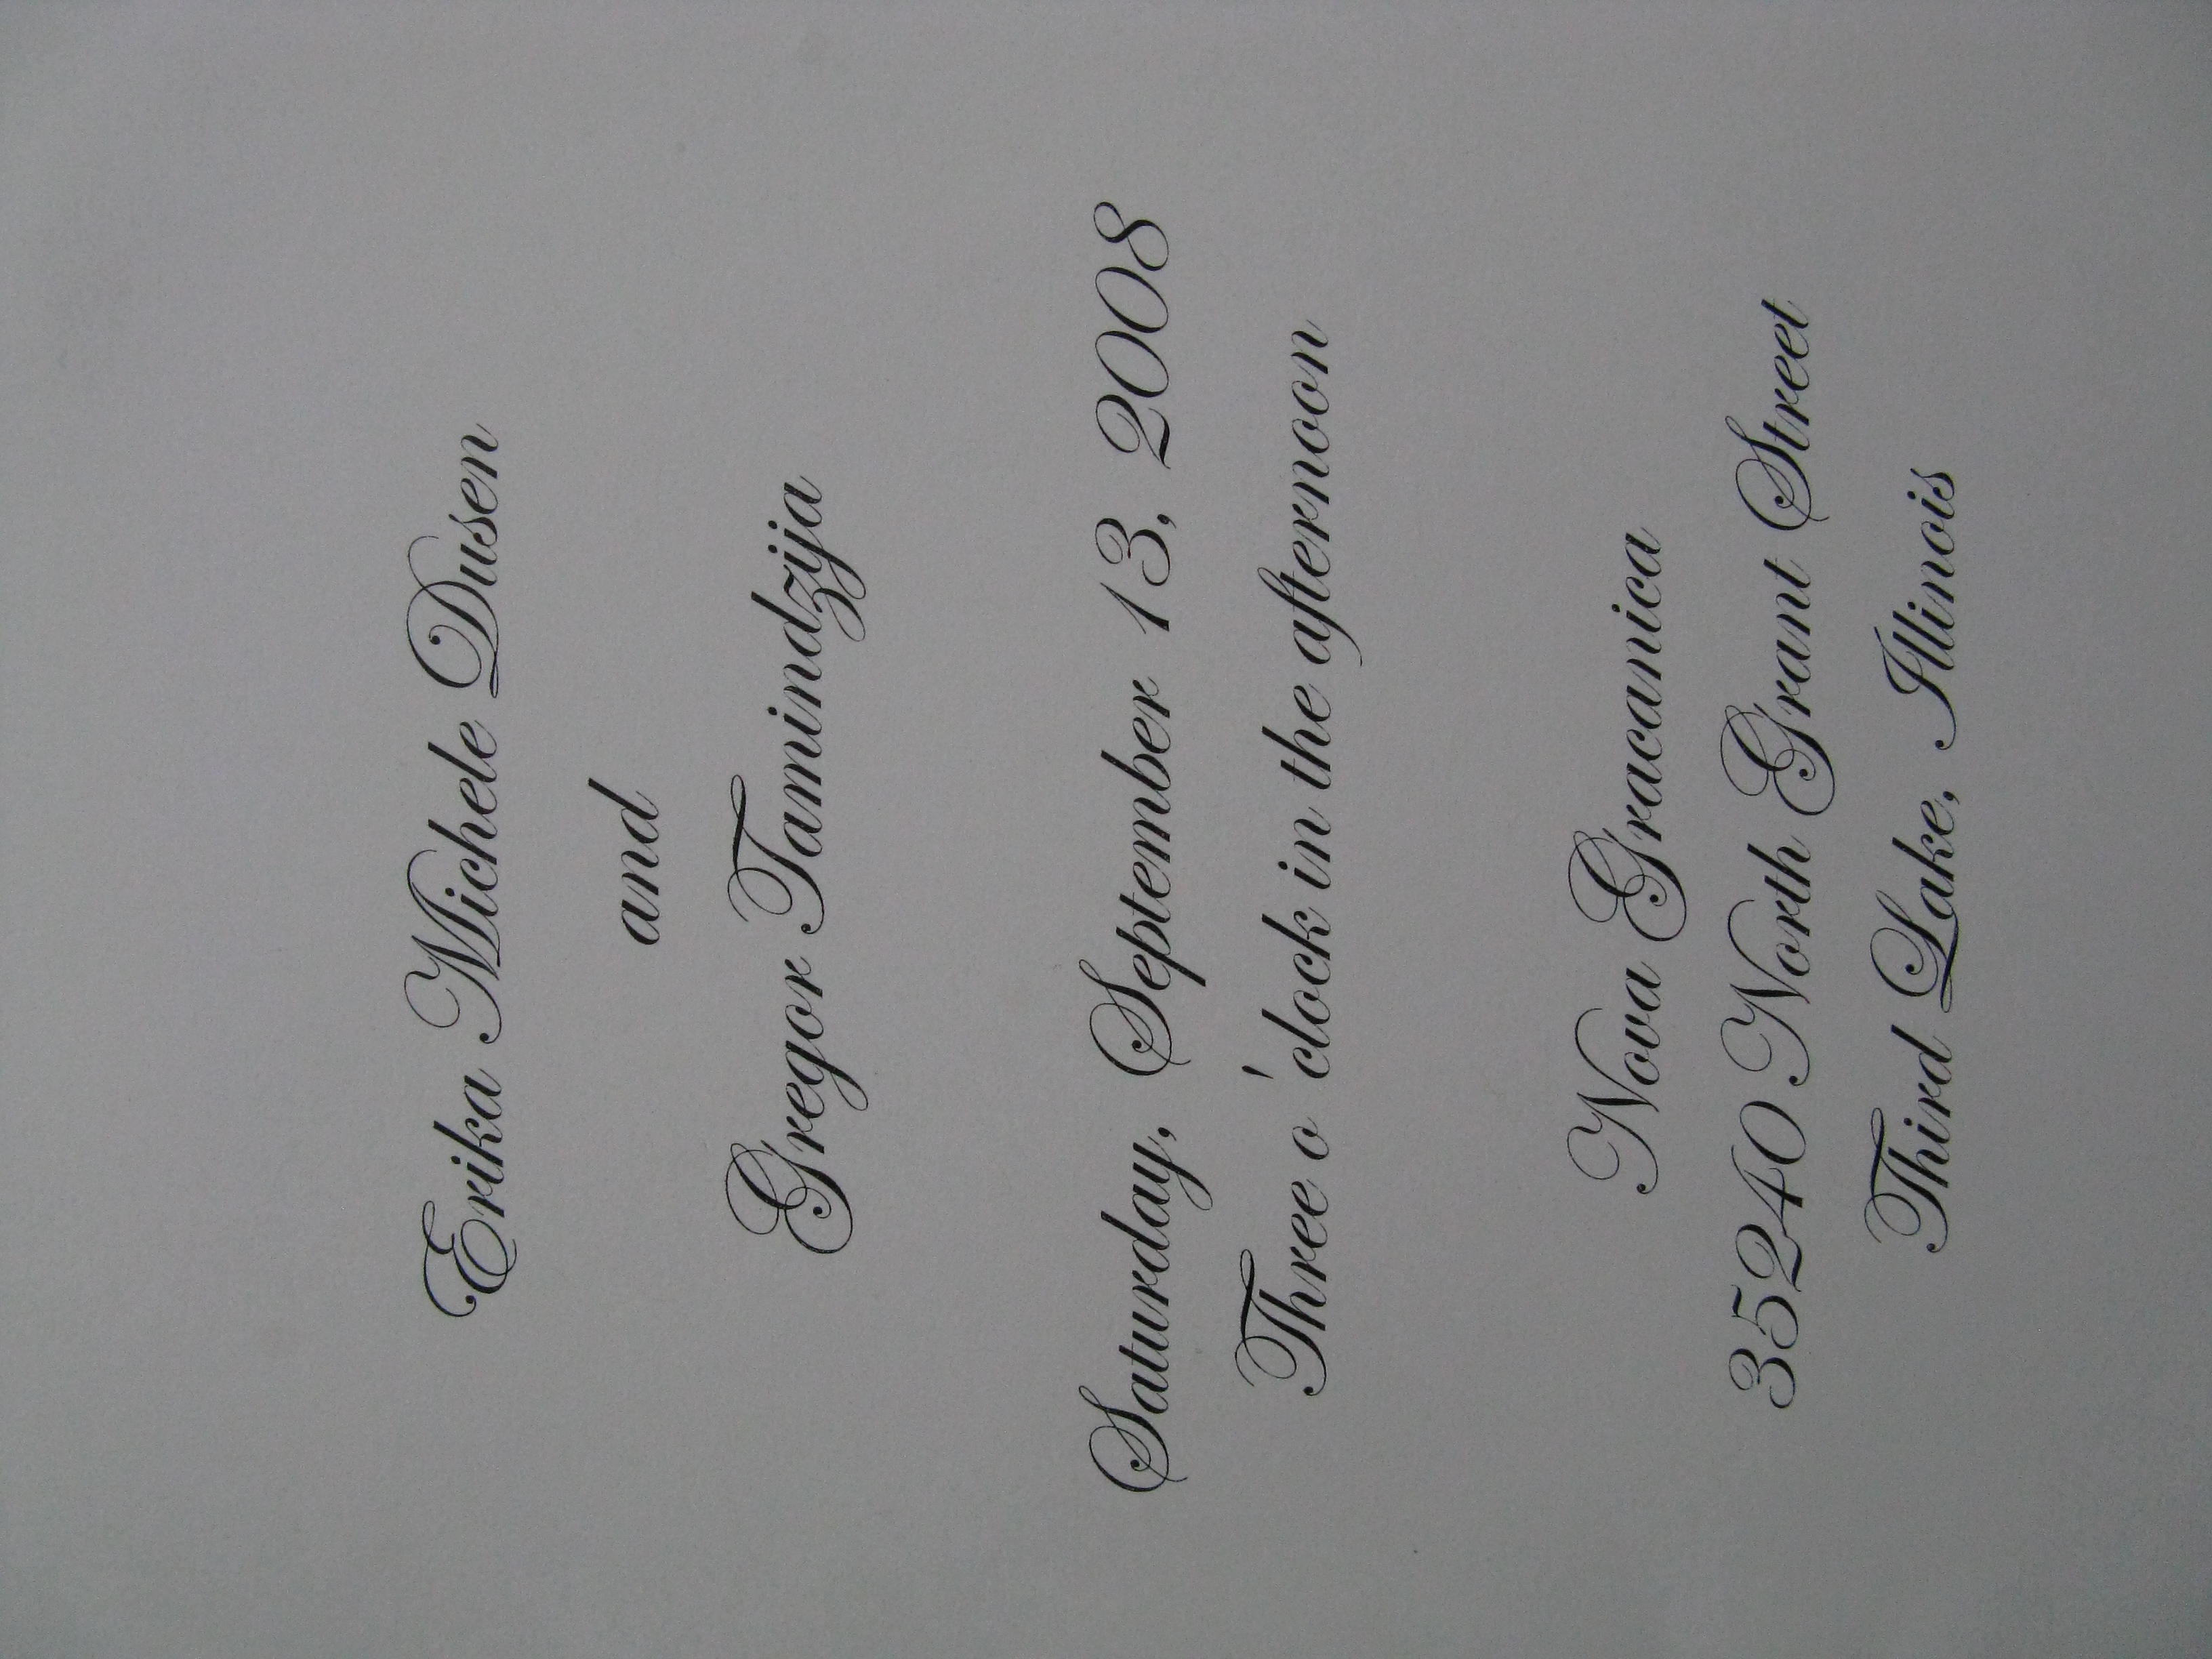 Erika Michele Dusen
and
Gregor Tamindzija
Saturday, September 13, 2008
Three o 'clock in the afternoon
Nova Gracanica
35240 North Grant Street
Third Lake, Illinois